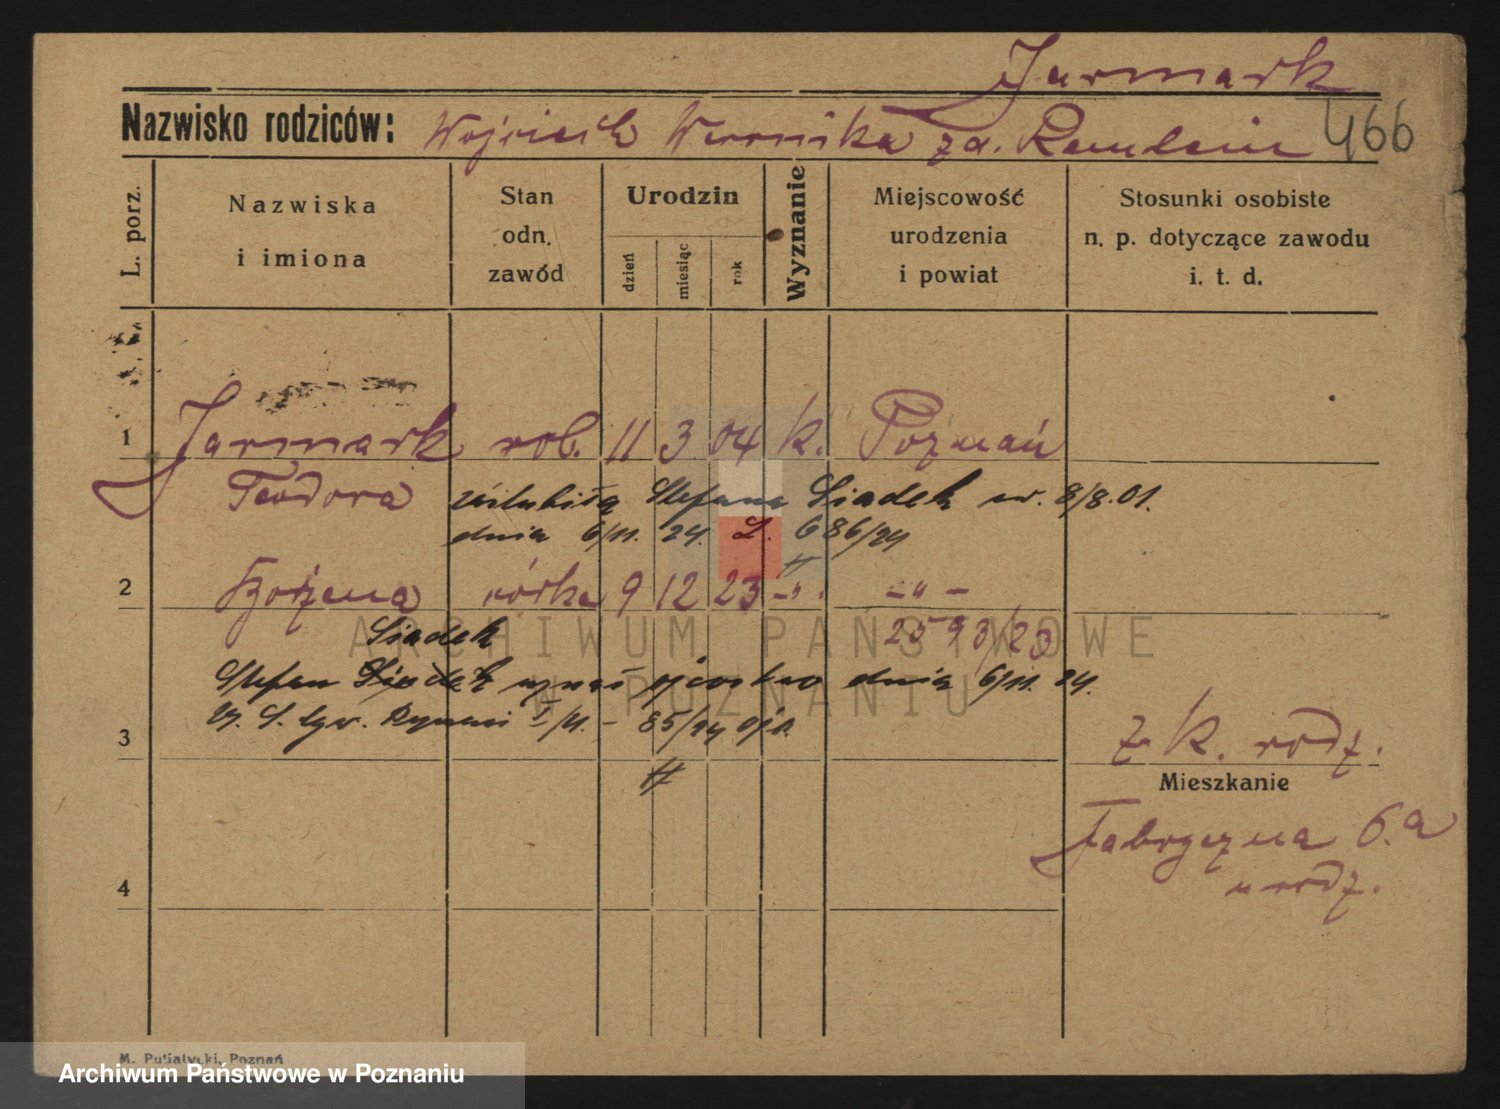 Jarmark
Nazwisko rodziców: Wojciech Weronika zd. 466
L. porz.
Nazwiska i imiona
Stan odn. zawód
Urodzin
dzień miesiąc rok
Wyznanie
Miejscowość urodzenia i powiat
Stosunki osobiste n. p. dotyczące zawodu i. t. d.
1 Jarmark rob. 11 3 04 k. Poznań
Teodora zaślubiła Stefana Siadek ur. 8/8.01.
dnia 6/11. 24. L. 686/24
2 Bożena córka 9 12 23 -„- -„-
Siadek 2593/23
Stefan Siadek uznał ojcostwo dnia 6/11. 24.
85/24
3 z k. rodz.
Mieszkanie
Fabryczna 6.a
u rodz.
4
ARCHIWUM PAŃSTWOWE
W POZNANIU
M. Putiatycki, Poznań
Archiwum Państwowe w Poznaniu